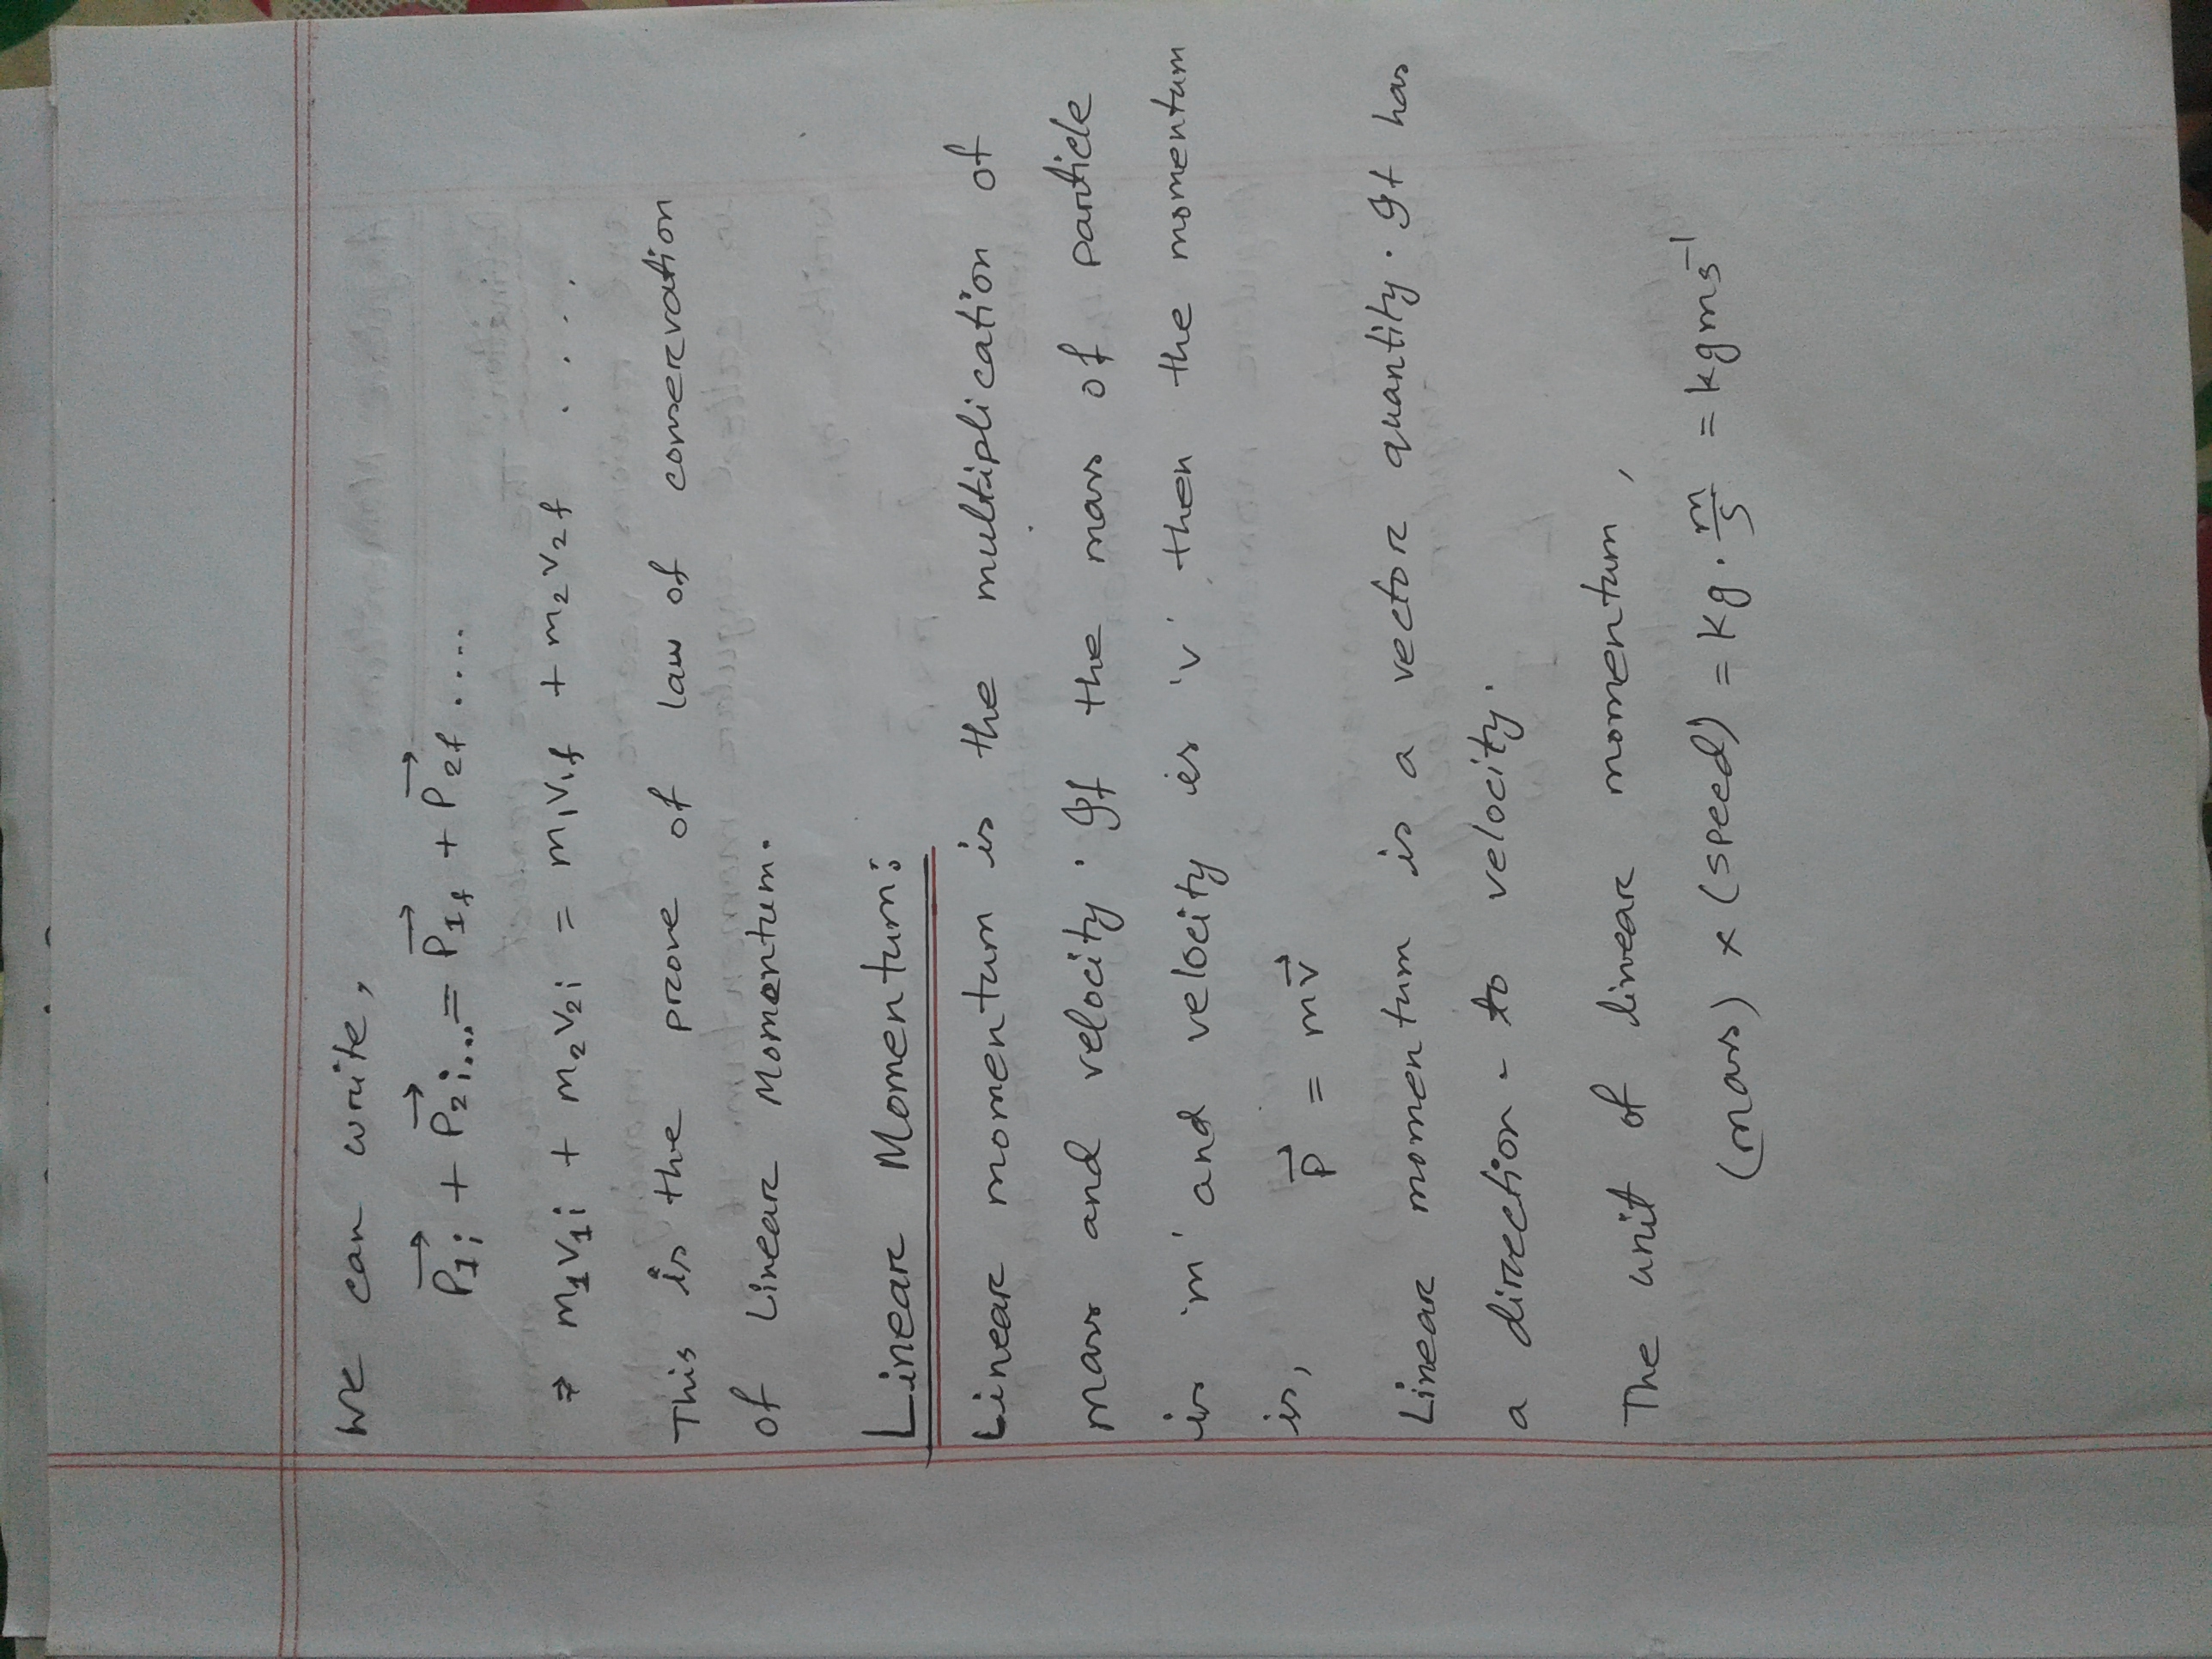 We can write,
P⃗1i + P⃗2i... = P⃗1f + P⃗2f ....
⇒ m1v1i + m2v2i = m1v1f + m2v2f ....
This is the prove of law of conservation
of Linear Momentum.
Linear Momentum:
Linear momentum is the multiplication of
mass and velocity. If the mass of particle
is 'm' and velocity is 'v' then the momentum
is, p⃗ = mv⃗
Linear momentum is a vector quantity. It has
a direction - to velocity.
The unit of linear momentum,
(mass) × (speed) = kg . m/s = kgms⁻¹